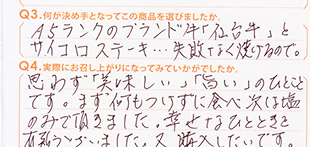 Q3.何が決め手となってこの商品を選びましたか。
A5ランクのブランド牛「仙台牛」と
サイコロステーキ…失敗なく焼けるので。
Q4.実際にお召し上がりになってみていかがでしたか。
思わず「美味しい」「旨い」のひとこと
です。まず何もつけずに食べ次は塩
のみで頂きました。幸せなひとときを
有難うございました。又購入したいです。